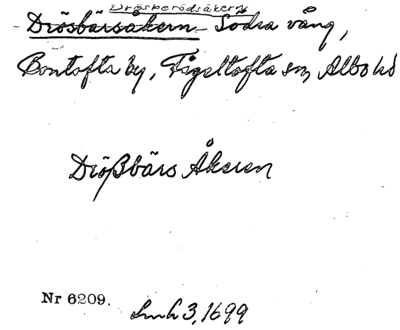 Drösperödsåkern
Drösbärsåkern Södra vång,
Bontofta by, Fågeltofta sn, Albo hd
Drößbärs Åkeren
Nr 6209. Lmh 3, 1699